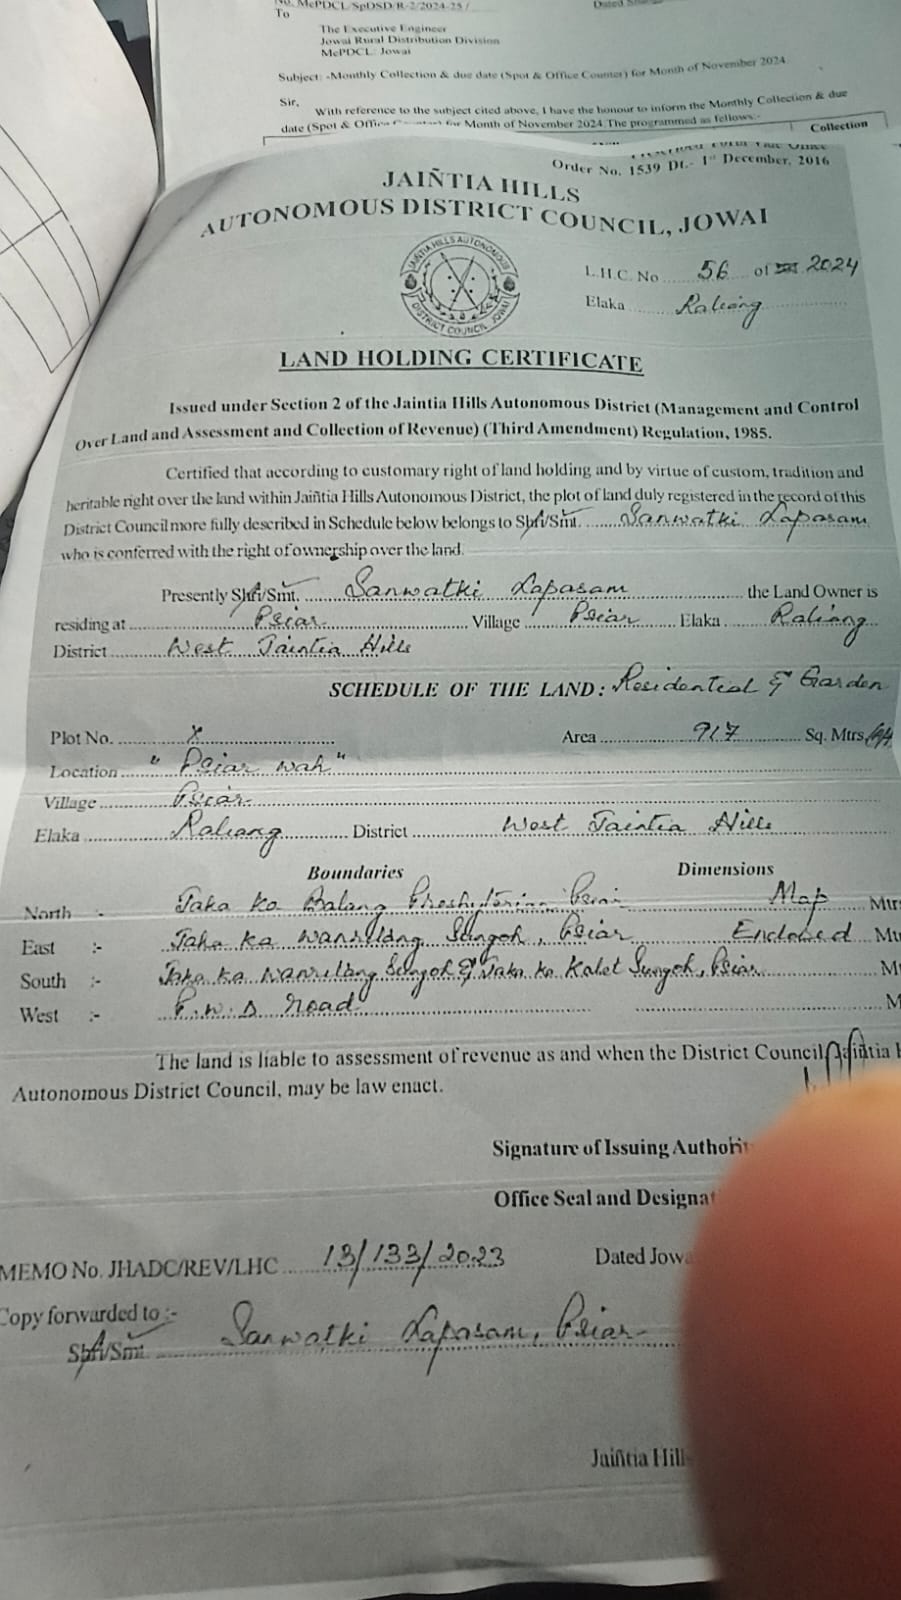 No. MePDCL/SpDSD/R-2/2024-25/
To
The Executive Engineer
Jowai Rural Distribution Division
MePDCL: Jowai
Subject: -Monthly Collection & due date (Spot & Office Counter) for Month of November 2024
Sir,
With reference to the subject cited above, I have the honour to inform the Monthly Collection & due
date (Spot & Office for Month of November 2024.The programmed as fellows:-
Collection
Order No. 1539 Dt.- 1st December, 2016
JAIÑTIA HILLS
AUTONOMOUS DISTRICT COUNCIL, JOWAI
JAIÑTIA HILLS AUTONOMOUS
DISTRICT COUNCIL JOWAI
L.H.C. No 56 of 2024
Elaka Raliang
LAND HOLDING CERTIFICATE
Issued under Section 2 of the Jaintia Hills Autonomous District (Management and Control
Over Land and Assessment and Collection of Revenue) (Third Amendment) Regulation, 1985.
Certified that according to customary right of land holding and by virtue of custom, tradition and
heritable right over the land within Jaiñtia Hills Autonomous District, the plot of land duly registered in the record of this
District Council more fully described in Schedule below belongs to Shri/Smt. Sanwatki Lapasam
who is conferred with the right of ownership over the land.
Presently Shri/Smt. Sanwatki Lapasam the Land Owner is
residing at Psiar Village Psiar Elaka Raliang
District West Jaintia Hills
SCHEDULE OF THE LAND: Residential & Garden
Plot No. X Area 917 Sq. Mtrs
Location "Psiar wah"
Village Psiar
Elaka Raliang District West Jaintia Hills
Boundaries Dimensions
North :- Jaka ko Balang Presbyterian Psiar Map Mtr
East :- Jaka ka Wanrilang Sungoh, Psiar Enclosed Mt
South :- Jaka ka Wanrilang Sungoh & Jaka ka Kalet Sungoh, Psiar M
West :- P.W.D Road M
The land is liable to assessment of revenue as and when the District Council Jaiñtia H
Autonomous District Council, may be law enact.
Signature of Issuing Authorit
Office Seal and Designat
MEMO No. JHADC/REV/LHC 13/133/2023 Dated Jowa
Copy forwarded to :-
Shri/Smt. Sanwatki Lapasam, Psiar
Jaiñtia Hill